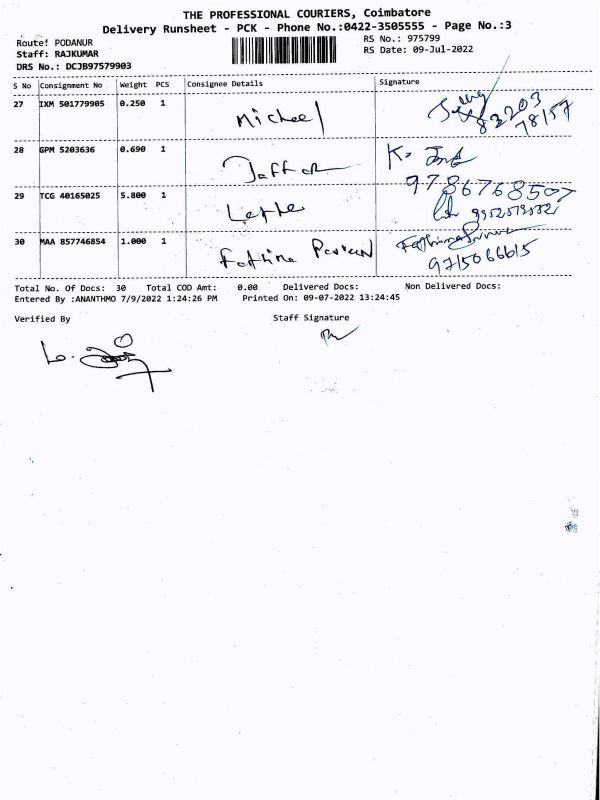 THE PROFESSIONAL COURIERS, Coimbatore
Delivery Runsheet - PCK - Phone No.:0422-3505555 - Page No.:3
Route: PODANUR
RS No.: 975799
Staff: RAJKUMAR
RS Date: 09-Jul-2022
DRS No.: DCJB97579903
S No Consignment No Weight PCS Consignee Details Signature
27 IXM 501779905 0.250 1 Micheel
83203
78157
28 GPM 5203636 0.690 1 Jaffar K.
9786768507
29 TCG 40165025 5.800 1
30 MAA 857746854 1.000 1 Fathima Parveen
9715066615
Total No. Of Docs: 30 Total COD Amt: 0.00 Delivered Docs: Non Delivered Docs:
Entered By :ANANTHMO 7/9/2022 1:24:26 PM Printed On: 09-07-2022 13:24:45
Verified By Staff Signature